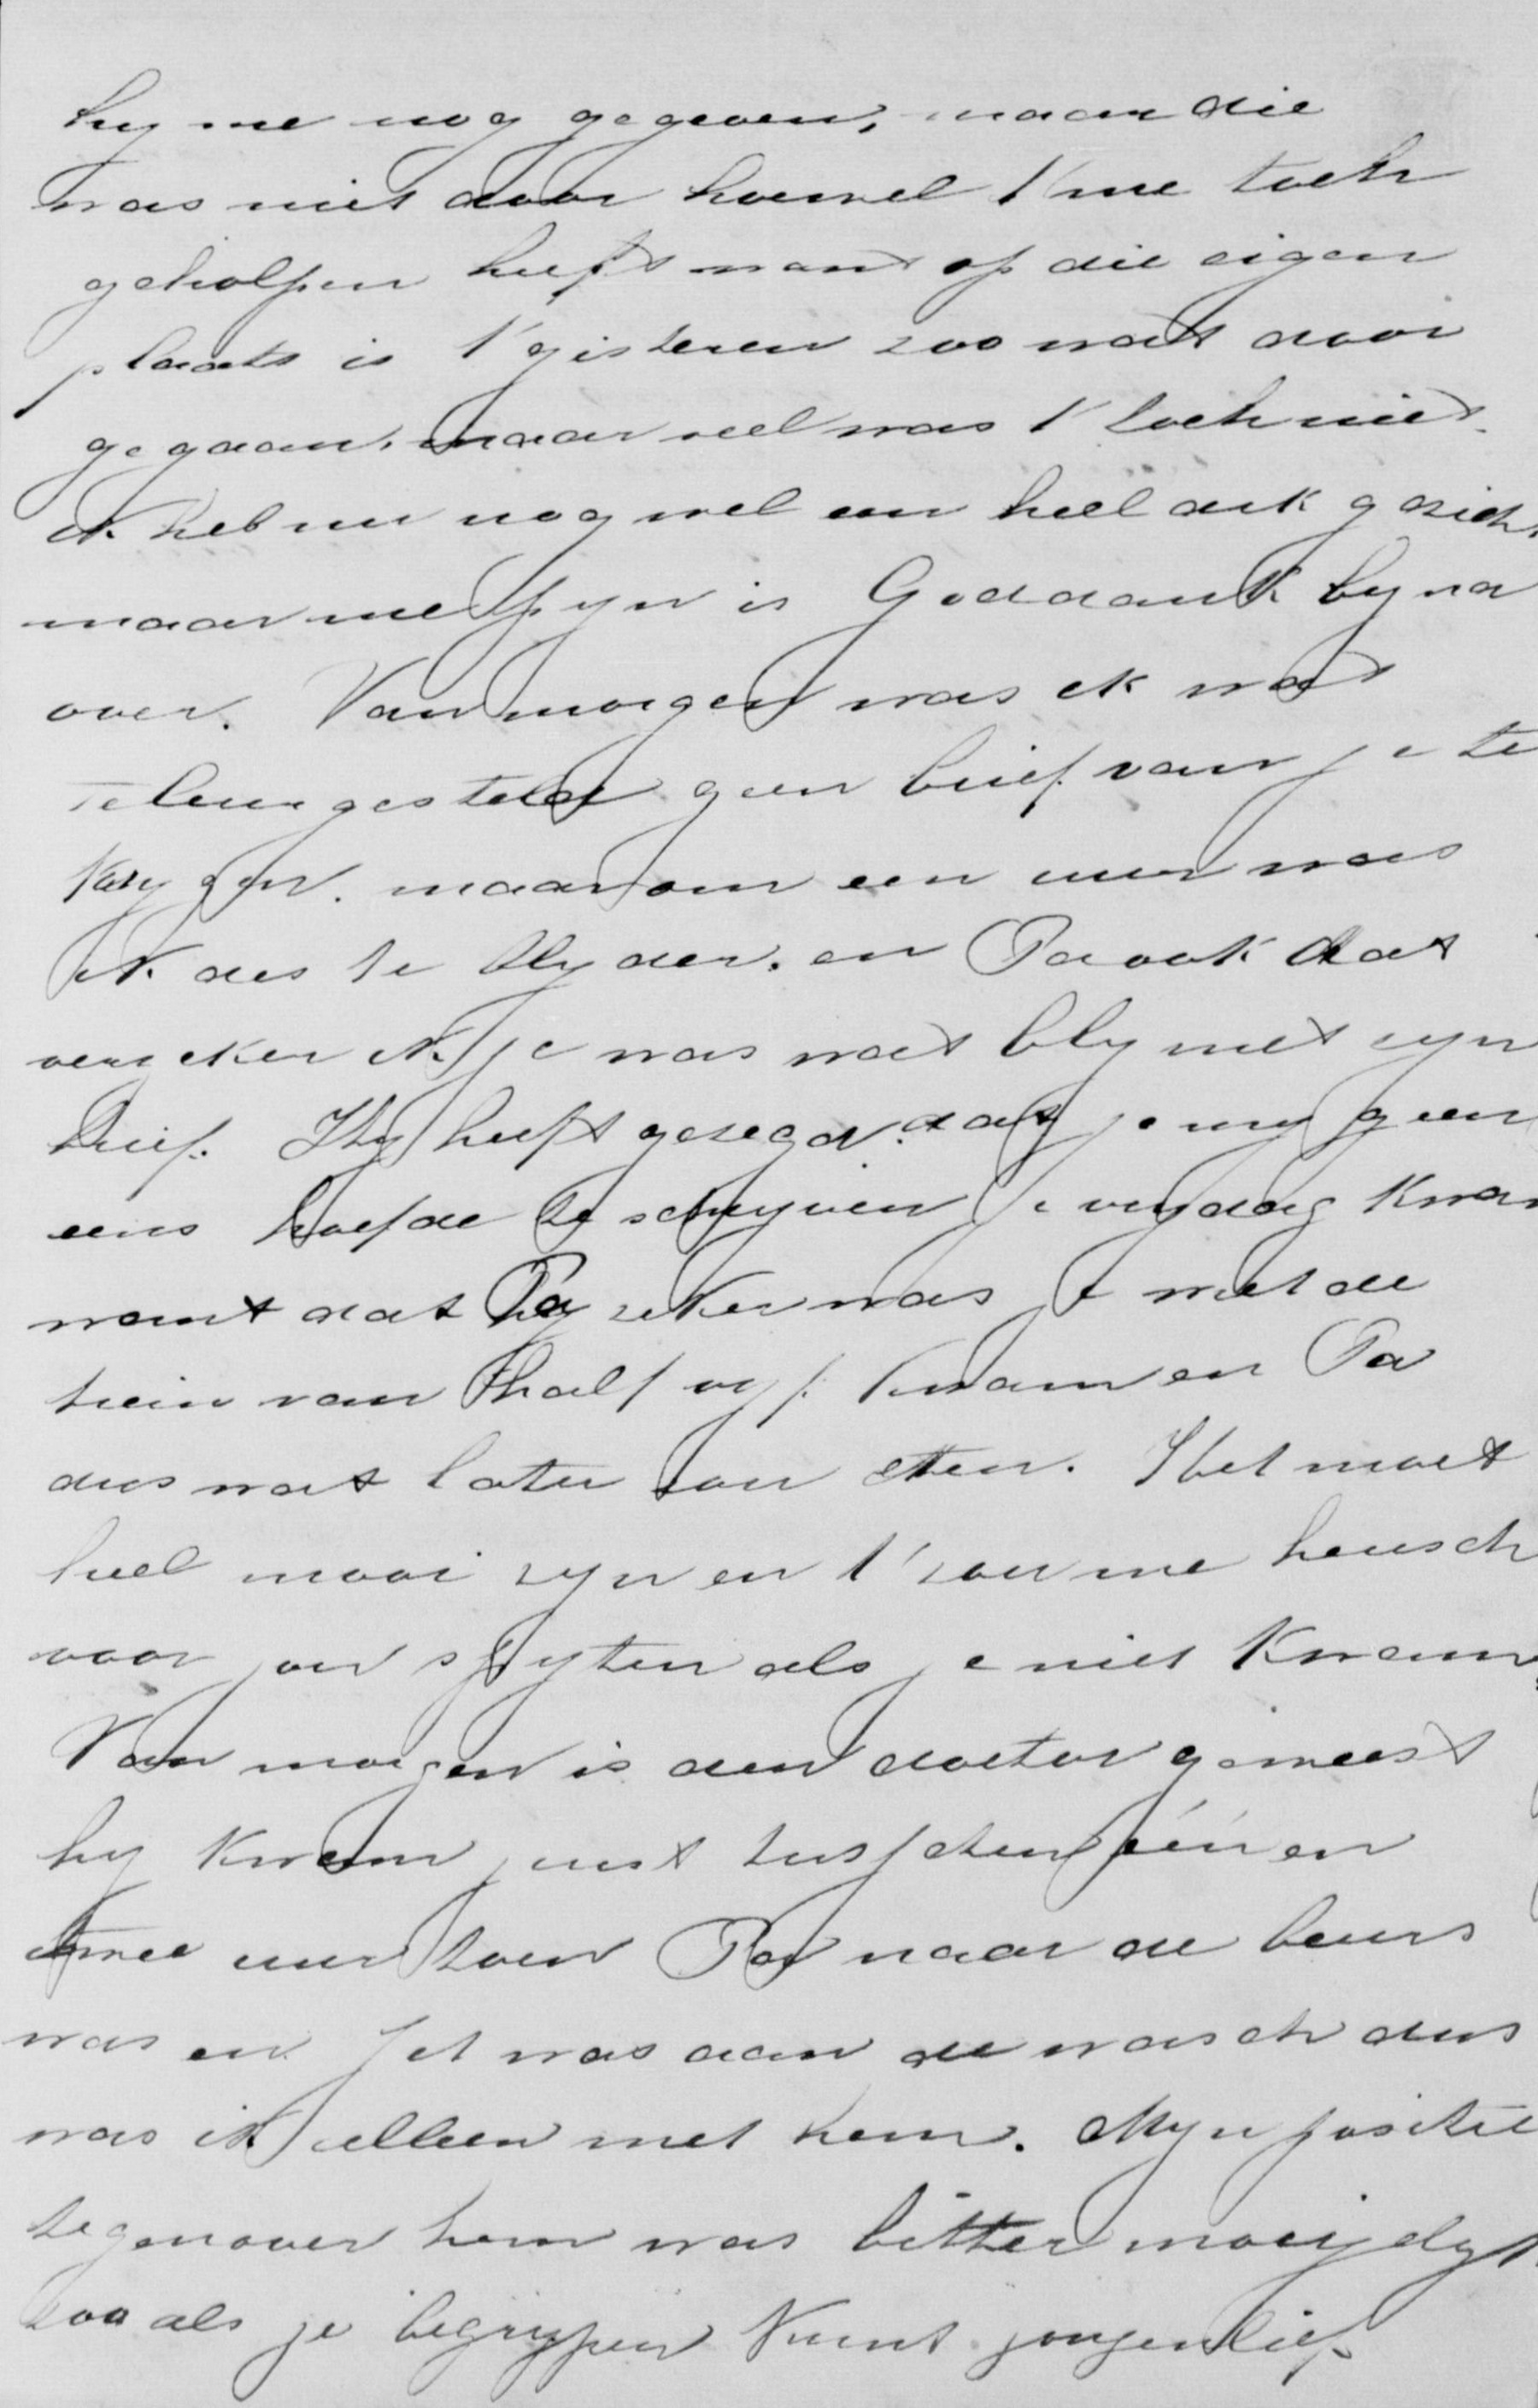 hy me nog gegeven, maar die
was niet door hoewel 't me toch
geholpen heeft want op die eigen
plaats is 't gisteren zoo wat door
gegaan, maar veel was 't toch niet.
ik heb nu nog wel een heel dik gezicht
maar me pyn is Goddank byna
over. Van morgen was ik wat
teleurgesteld geen brief van je te
krygen. maar om een uur was
ik des te blyder, en Pa ook dat
verzeker ik je was wat bly met zyn
brief. Hy heeft gezegd dat je my geen
eens hoefde te schryven je vrydag kwam
want dat hy zeker was je met de
trein van half vyf kwam en Pa
dus wat later zou eten. Het moet
heel mooi zyn en 't zou me heusch
voor jou spyten als je niet kwam
Van morgen is den doctor geweest
hy kwam juist tusschen één en
twee uur toen Pa naar de beurs
was en Jet was aan de wasch dus
was ik alleen met hem. Myn positie
tegenover hem was bitter moeijelyk
zoo als je begrypen kunt jongenlief